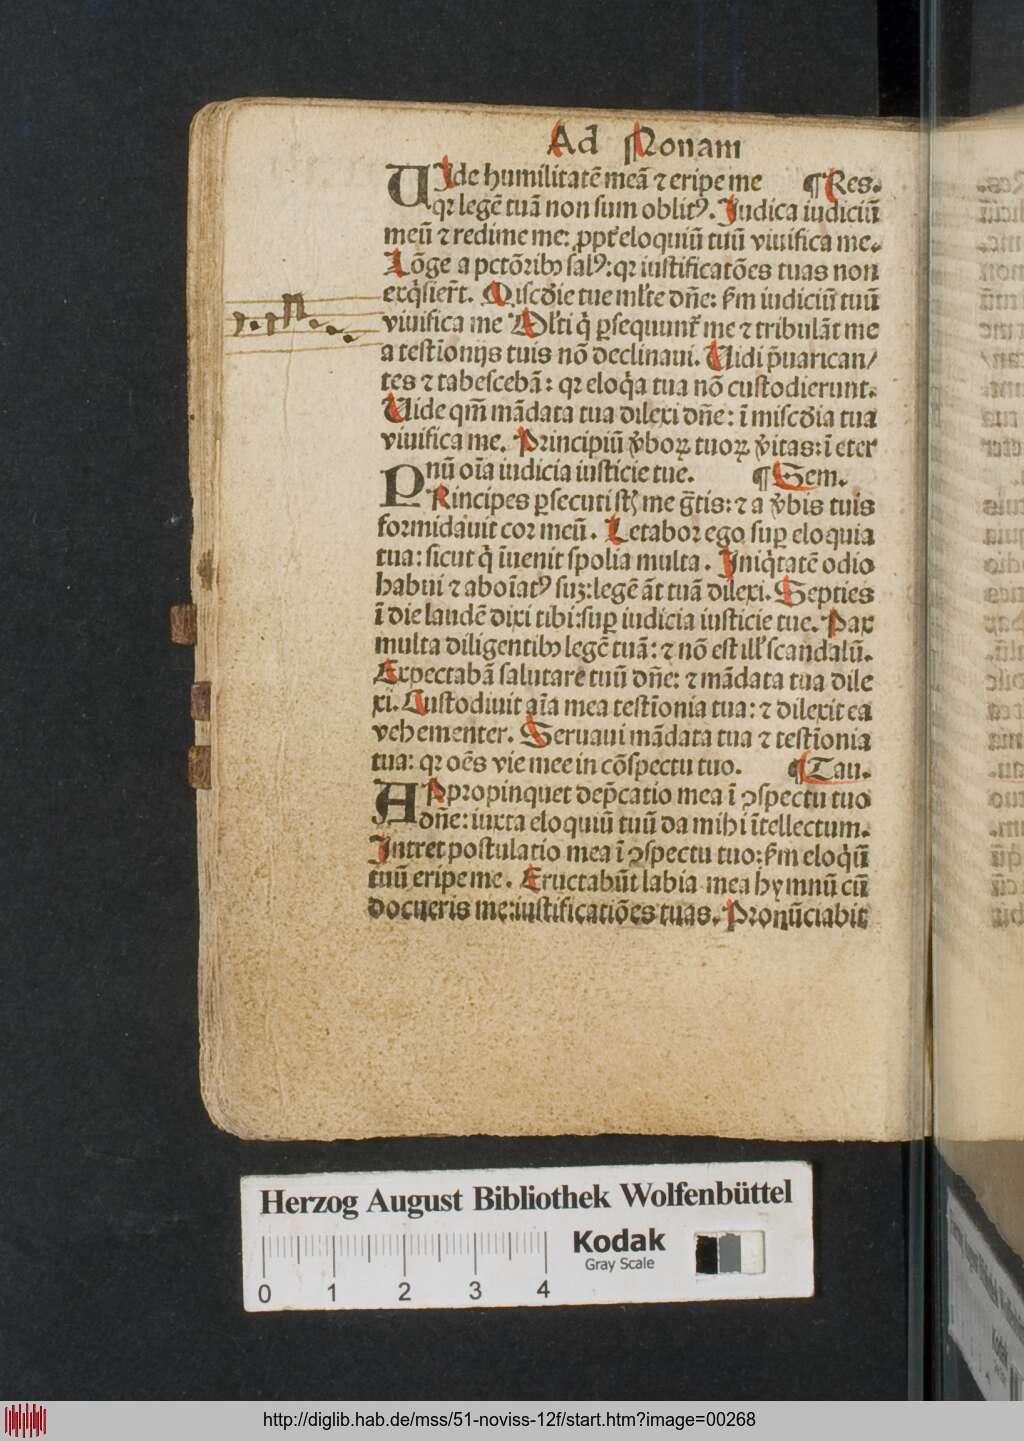 Ad Nonam
UIde humilitatē meā ⁊ eripe me ¶Res.
qꝛ legē tuā non sum oblitꝰ. Iudica iudiciū
meū ⁊ redime me: ꝓpt̄ eloquiū tuū viuifica me.
Lōge a pctōꝛibꝰ salꝰ: qꝛ iustificatōes tuas non
exq̇sier̄t. Miscd̄ie tue ml̄te dn̄e: ẜm iudiciū tuū
viuifica me Ml̄ti q̇ ꝑsequunt᷑ me ⁊ tribulāt me
a testīonijs tuis nō declinaui. Uidi p̄uarican/
tes ⁊ tabescebā: qꝛ eloq̇a tua nō custodierunt.
Uide qm̄ mādata tua dilexi dn̄e: ī miscd̄ia tua
viuifica me. Principiū v̄boꝝ tuoꝝ v̄itas: ī eter
nū oīa iudicia iusticie tue. ¶Sem.
PRincipes ꝑsecuti st̄ me gr̄tis: ⁊ a v̄bis tuis
formidauit cor meū. Letaboꝛ ego suꝑ eloquia
tua: sicut q̇ īuenit spolia multa. Iniq̇tatē odio
habui ⁊ aboīatꝰ suꝫ: legē āt tuā dilexi. Septies
ī die laudē dixi tibi: suꝑ iudicia iusticie tue. Pax
multa diligentibꝰ legē tuā: ⁊ nō est ill᷑ scandalū.
Expectabā salutare tuū dn̄e: ⁊ mādata tua dile
xi. Custodiuit aīa mea testīonia tua: ⁊ dilexit ea
vehementer. Seruaui mādata tua ⁊ testīonia
tua: qꝛ oēs vie mee in cōspectu tuo. ¶Tau.
APpropinquet dep̄catio mea ī ꝯspectu tuo
dn̄e: iuxta eloquiū tuū da mihi ītellectum.
Intret postulatio mea ī ꝯspectu tuo: ẜm eloq̇ū
tuū eripe me. Eructabūt labia mea hymnū cū
docueris me: iustificatiōes tuas. Pronūciabit
Herzog August Bibliothek Wolfenbüttel
Kodak
Gray Scale
0 1 2 3 4
http://diglib.hab.de/mss/51-noviss-12f/start.htm?image=00268